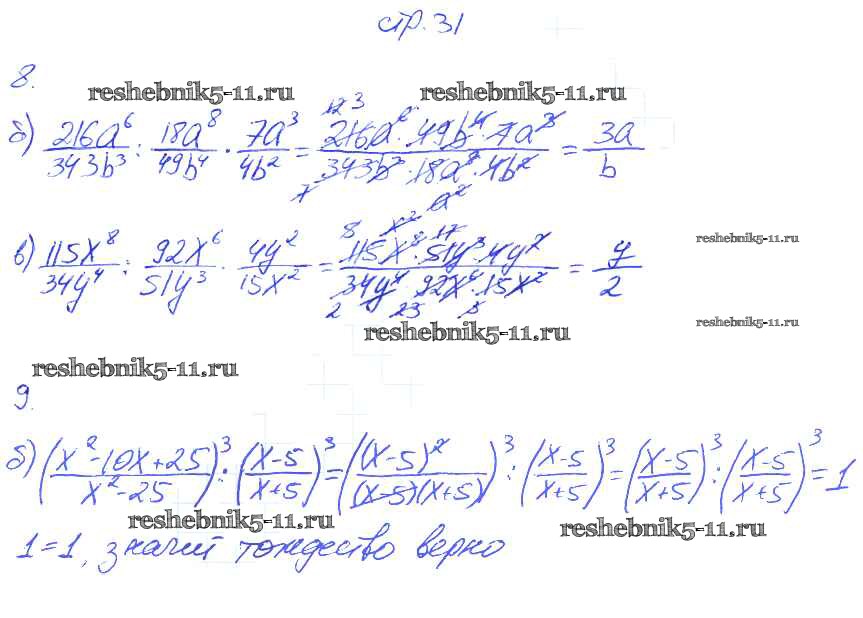 стр. 31
8.
reshebnik5-11.ru reshebnik5-11.ru
б) 216a⁶/343b³ : 18a⁸/49b⁴ · 7a³/4b² = 216a⁶ · 49b⁴ · 7a³/343b³ · 18a⁸ · 4b² = 3a/b
в) 115x⁸/34y⁴ : 92x⁶/51y³ · 4y²/15x² = 115x⁸ · 51y³ · 4y²/34y⁴ · 92x⁶ · 15x² = y/2
reshebnik5-11.ru
reshebnik5-11.ru
reshebnik5-11.ru
reshebnik5-11.ru
9.
б) (x²-10x+25/x²-25)³ : (x-5/x+5)³ = ((x-5)²/(x-5)(x+5))³ : (x-5/x+5)³ = (x-5/x+5)³ : (x-5/x+5)³ = 1
reshebnik5-11.ru reshebnik5-11.ru
1=1, значит тождество верно